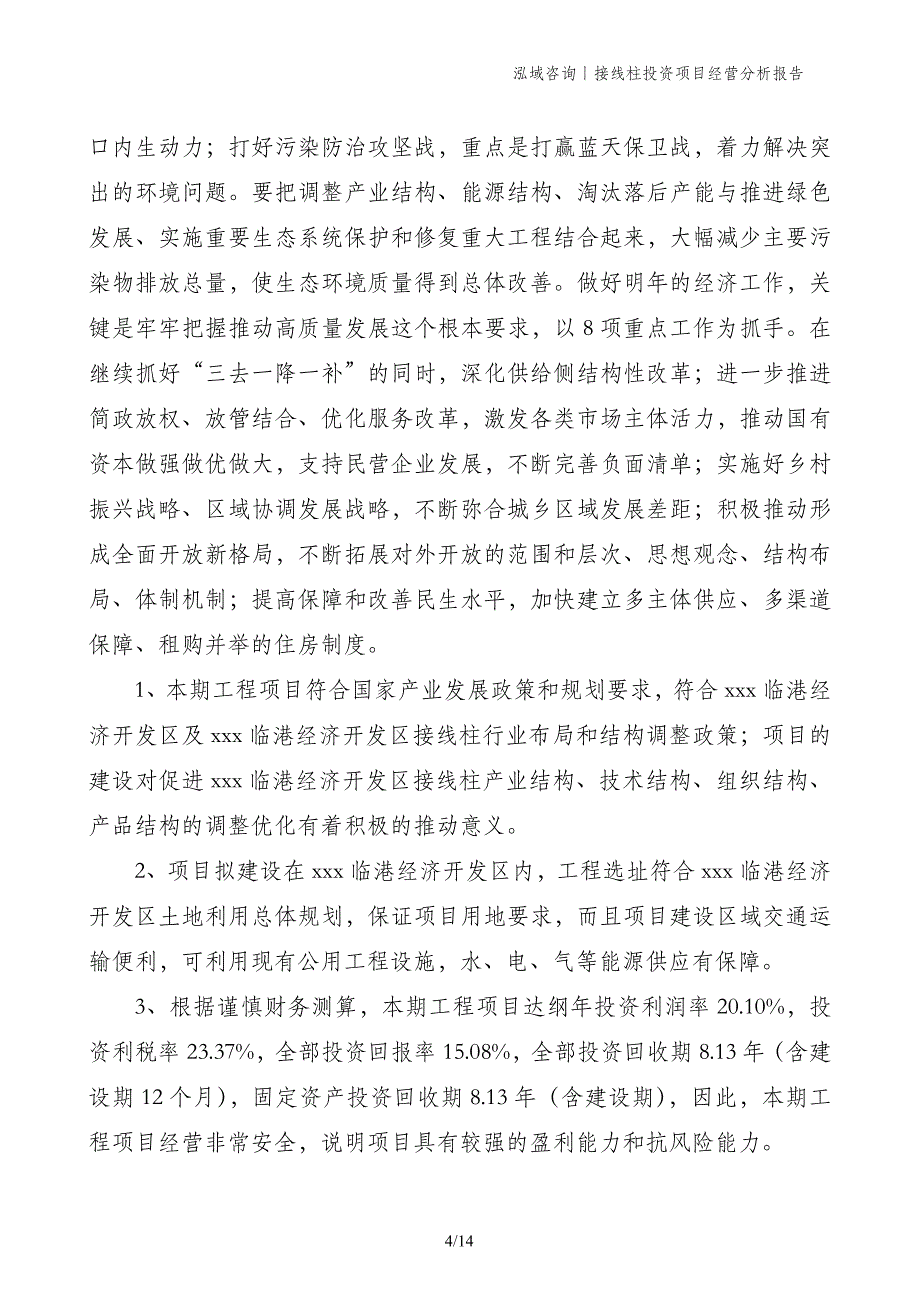 泓域咨询丨接线柱投资项目经营分析报告
口内生动力；打好污染防治攻坚战，重点是打赢蓝天保卫战，着力解决突
出的环境问题。要把调整产业结构、能源结构、淘汰落后产能与推进绿色
发展、实施重要生态系统保护和修复重大工程结合起来，大幅减少主要污
染物排放总量，使生态环境质量得到总体改善。做好明年的经济工作，关
键是牢牢把握推动高质量发展这个根本要求，以 8 项重点工作为抓手。在
继续抓好“三去一降一补”的同时，深化供给侧结构性改革；进一步推进
简政放权、放管结合、优化服务改革，激发各类市场主体活力，推动国有
资本做强做优做大，支持民营企业发展，不断完善负面清单；实施好乡村
振兴战略、区域协调发展战略，不断弥合城乡区域发展差距；积极推动形
成全面开放新格局，不断拓展对外开放的范围和层次、思想观念、结构布
局、体制机制；提高保障和改善民生水平，加快建立多主体供应、多渠道
保障、租购并举的住房制度。
1、本期工程项目符合国家产业发展政策和规划要求，符合 xxx 临港经
济开发区及 xxx 临港经济开发区接线柱行业布局和结构调整政策；项目的
建设对促进 xxx 临港经济开发区接线柱产业结构、技术结构、组织结构、
产品结构的调整优化有着积极的推动意义。
2、项目拟建设在 xxx 临港经济开发区内，工程选址符合 xxx 临港经济
开发区土地利用总体规划，保证项目用地要求，而且项目建设区域交通运
输便利，可利用现有公用工程设施，水、电、气等能源供应有保障。
3、根据谨慎财务测算，本期工程项目达纲年投资利润率 20.10%，投
资利税率 23.37%，全部投资回报率 15.08%，全部投资回收期 8.13 年（含建
设期 12 个月），固定资产投资回收期 8.13 年（含建设期），因此，本期工
程项目经营非常安全，说明项目具有较强的盈利能力和抗风险能力。
4/14